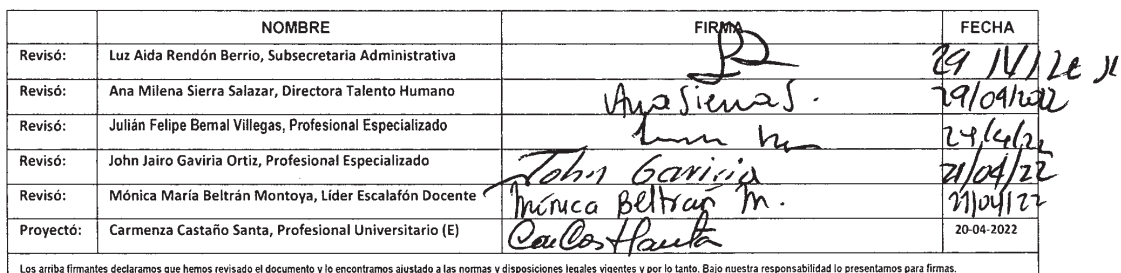 NOMBRE FIRMA FECHA
Revisó: Luz Aida Rendón Berrio, Subsecretaria Administrativa 29 /V/
Revisó: Ana Milena Sierra Salazar, Directora Talento Humano Ana Sierra S. 29/04/2022
Revisó: Julián Felipe Bernal Villegas, Profesional Especializado
Revisó: John Jairo Gaviria Ortiz, Profesional Especializado John Gaviria 21/04/22
Revisó: Mónica María Beltrán Montoya, Líder Escalafón Docente Mónica Beltrán M. 21/04/22
Proyectó: Carmenza Castaño Santa, Profesional Universitario (E) 20-04-2022
Los arriba firmantes declaramos que hemos revisado el documento y lo encontramos ajustado a las normas y disposiciones legales vigentes y por lo tanto. Bajo nuestra responsabilidad lo presentamos para firmas.